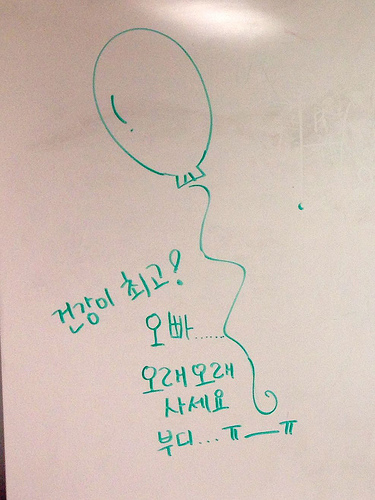 건강이 최고!
오빠......
오래오래
사세요
부디... ㅠㅡㅠ